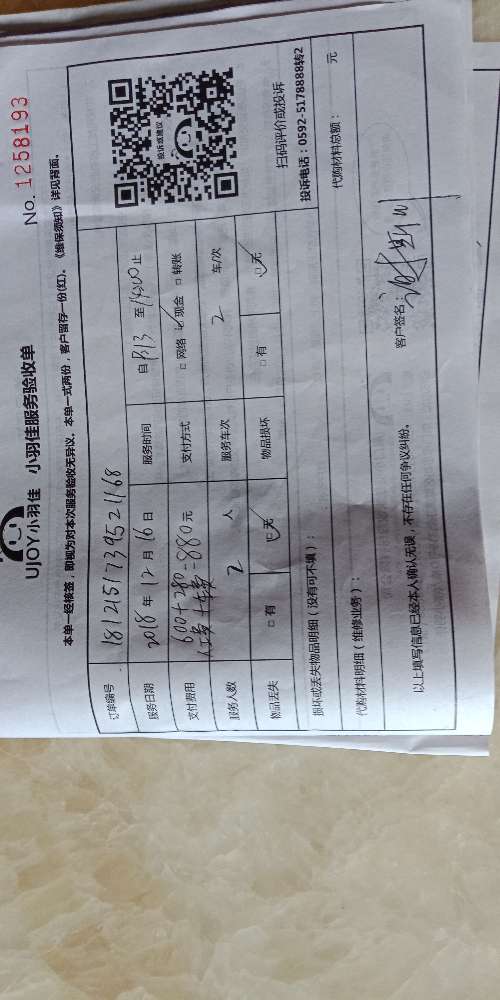 UJOY小羽佳 小羽佳服务验收单
No. 1258193
本单一经核签，即视为对本次服务验收无异议，本单一式两份，客户留存一份(红)。《维保须知》详见背面。
订单编号 181215173952 1168
服务日期 2018 年 12 月 16 日 服务时间 自 8:13 至 14:00 止
支付费用 600+280=880 元 支付方式 □ 网络 ☑ 现金 □ 转账
工费+车费
服务人数 2 人 服务车次 2 车/次
物品丢失 □ 有 ☑ 无 物品损坏 □ 有 ☑ 无
投诉或建议
扫码评价或投诉
投诉电话：0592-5178888转2
损坏或丢失物品明细（没有可不填）：
代购材料明细（维修业务）： 代购材料总额： 元
以上填写信息已经本人确认无误，不存在任何争议纠纷。 客户签名：